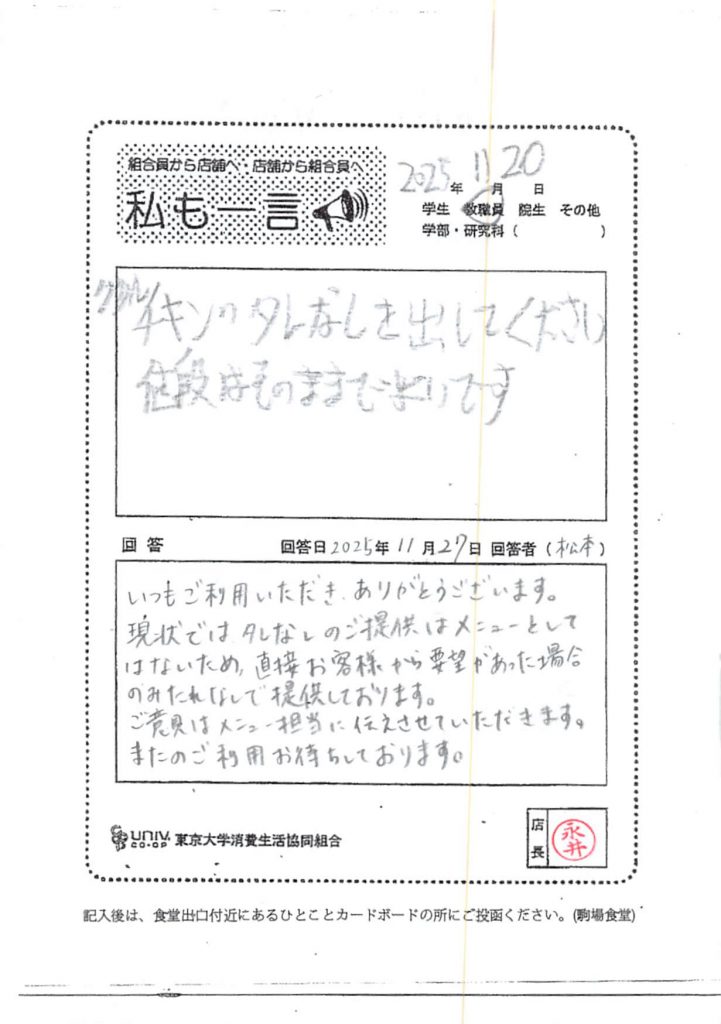 組合員から店舗へ・店舗から組合員へ
私も一言
2025年 11月 20日
学生 教職員 院生 その他
学部・研究科（ ）
グリル
チキンのタレなしを出してください
値段はそのままで良いです
回答 回答日2025年11月27日 回答者（松本）
いつもご利用いただき、ありがとうございます。
現状では タレなしのご提供はメニューとして
はないため、直接お客様から要望があった場合
のみたれなしで提供しております。
ご意見はメニュー担当に伝えさせていただきます。
またのご利用お待ちしております。
UNIV.
CO-OP 東京大学消費生活協同組合
店長 永井
記入後は、食堂出口付近にあるひとことカードボードの所にご投函ください。(駒場食堂)